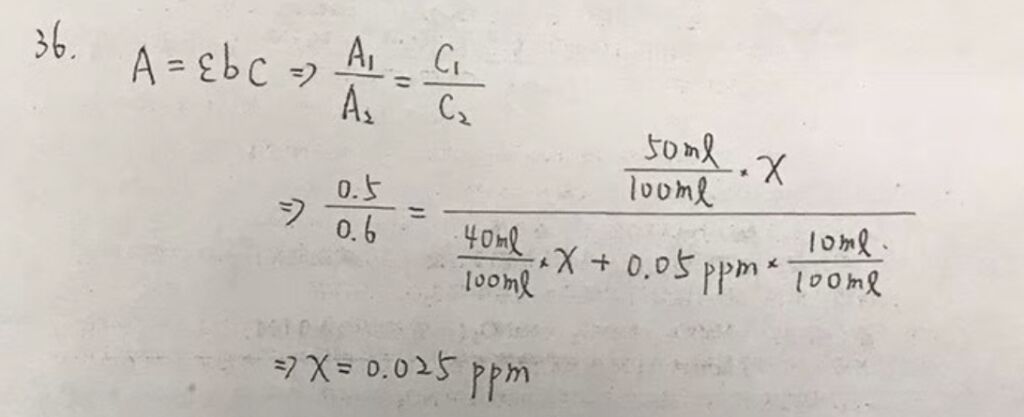 36.
A = εbC ⇒ A₁/A₂ = C₁/C₂
⇒ 0.5/0.6 = (50ml/100ml * X) / (40ml/100ml * X + 0.05 ppm * 10ml/100ml)
⇒ X = 0.025 ppm